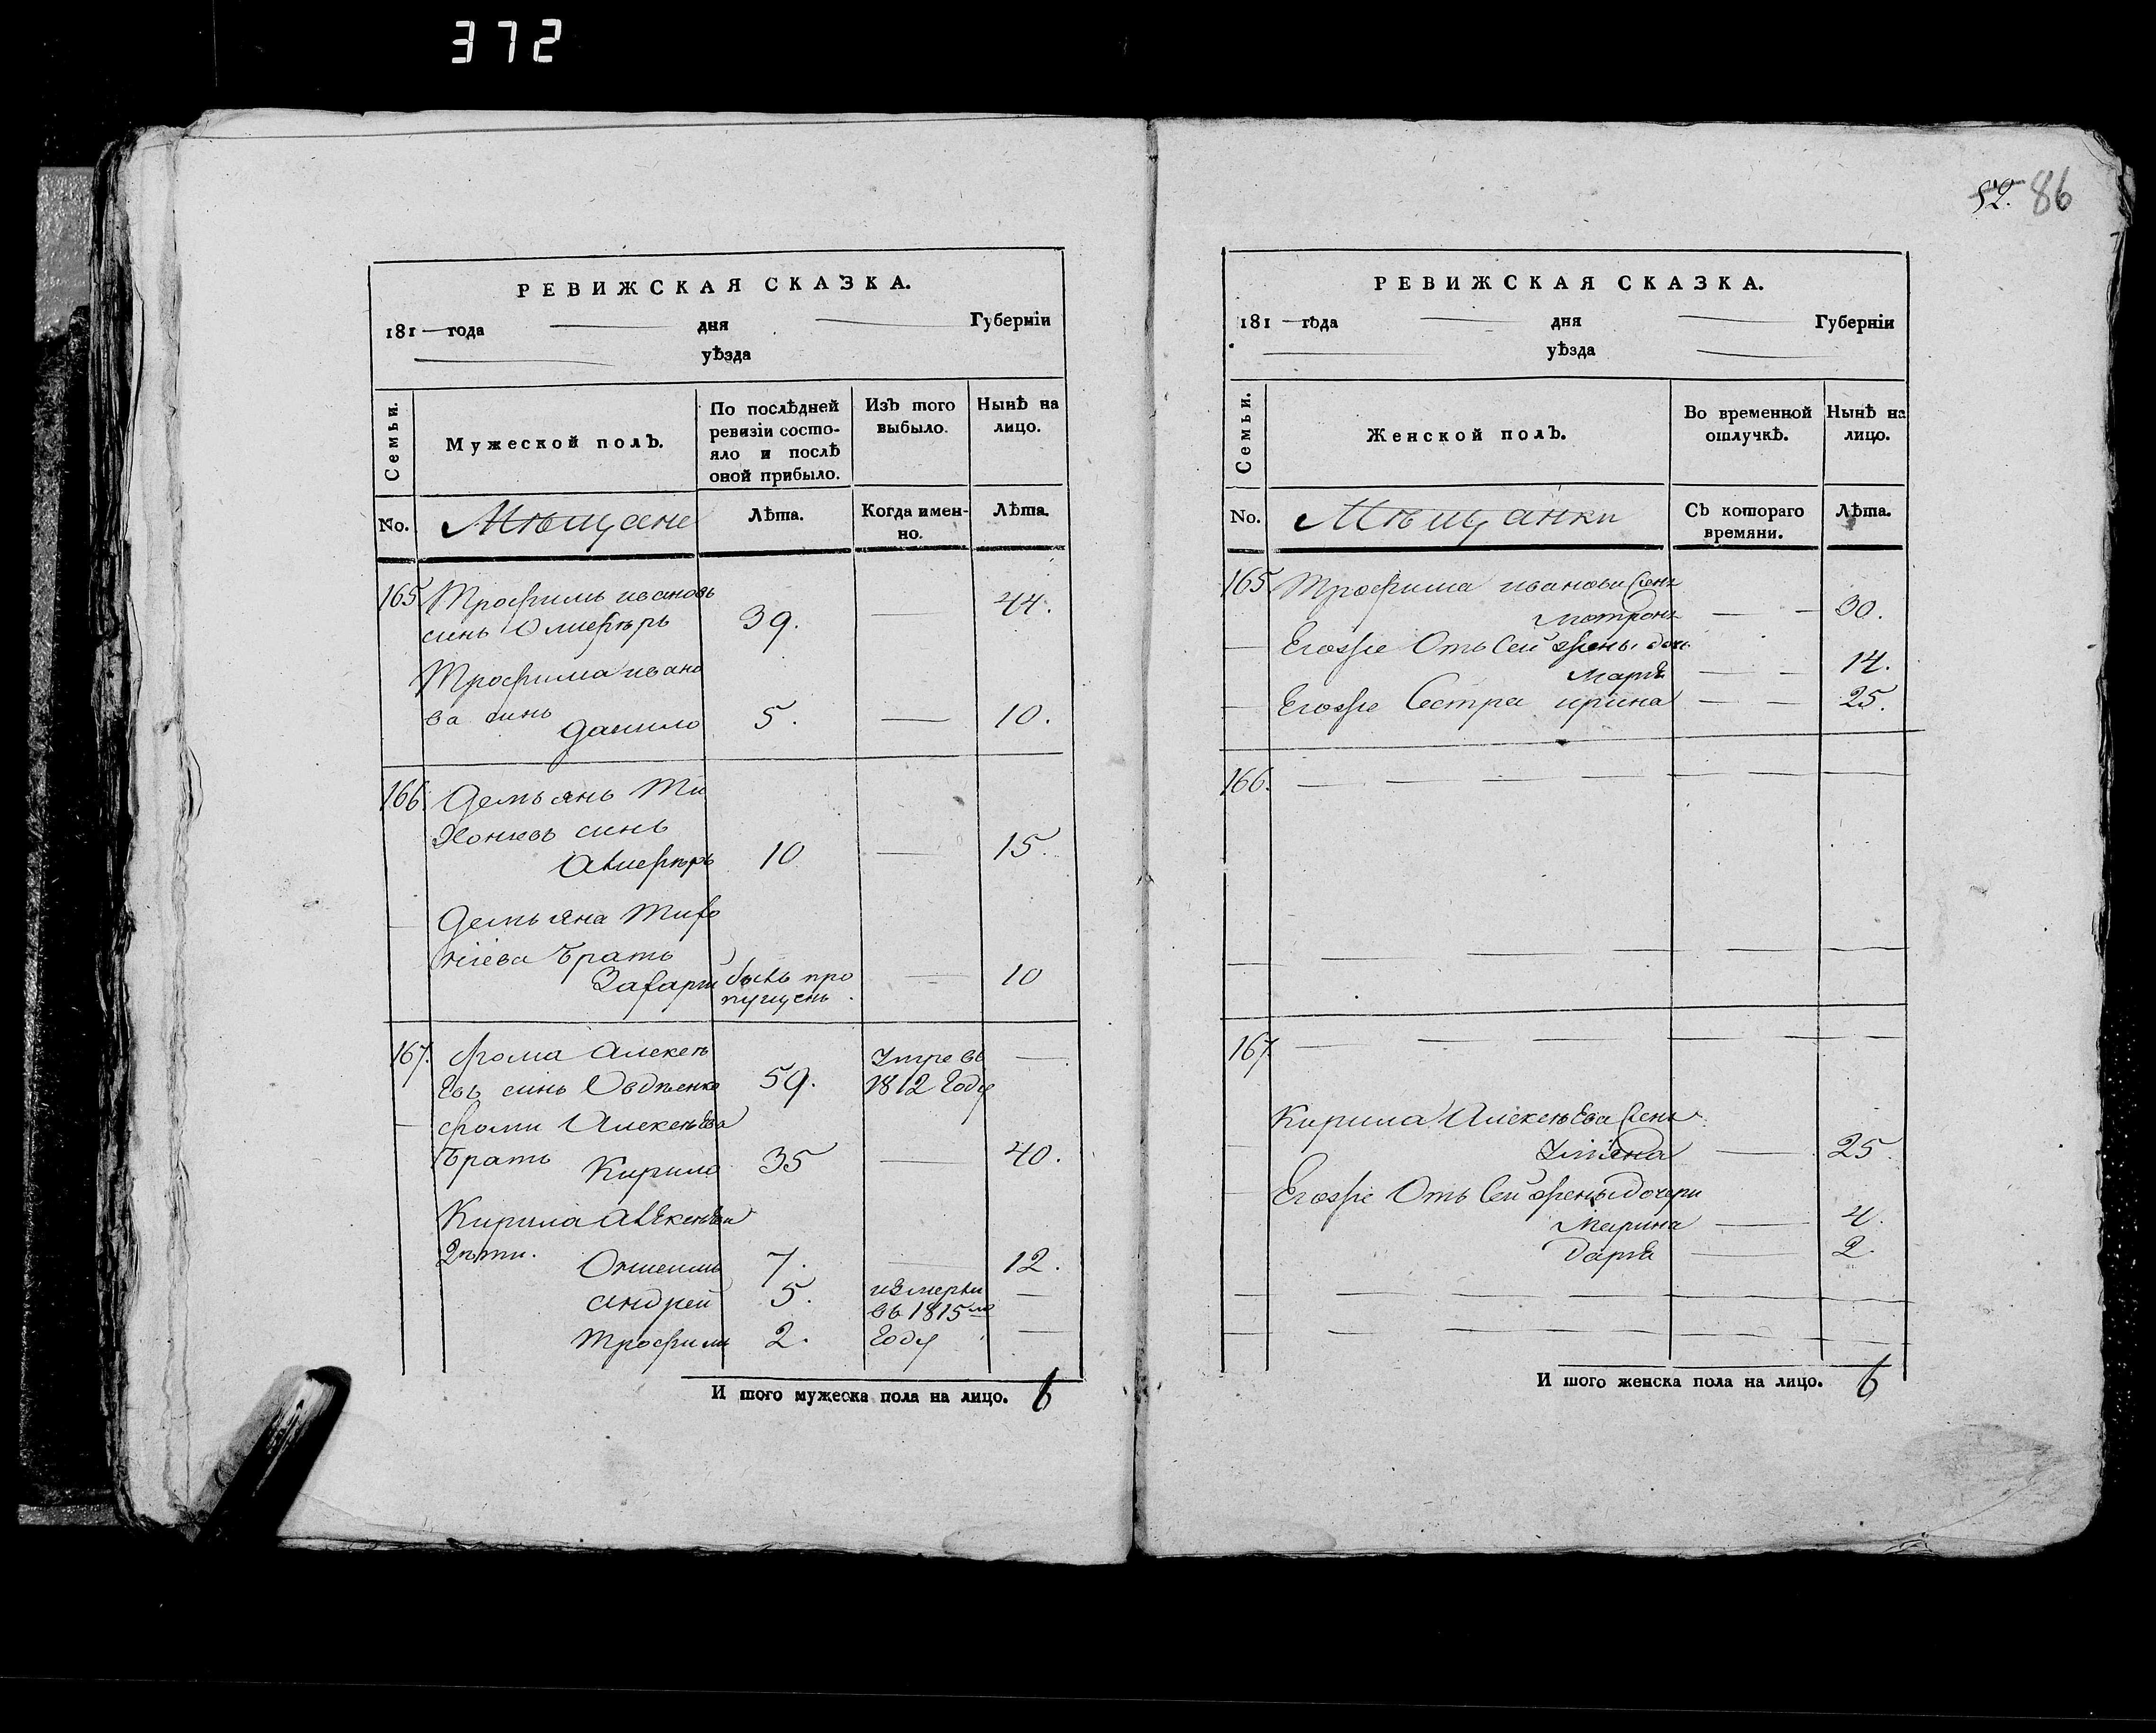 372
52. 86
РЕВИЖСКАЯ СКАЗКА.
181 — года — дня — Губерніи
— уѣзда
Семьи.
Мужеской полъ.
По послѣдней
ревизіи состо-
яло и послѣ
оной прибыло.
Изъ того
выбыло.
Нынѣ на
лицо.
No.
Мѣщане
Лѣта.
Когда имен-
но.
Лѣта.
165 Трофимъ ивановъ
синъ 39. — 44.
Трофима ивано
ва синъ
Данило 5. — 10.
166. Демьянъ Ти
хоніевъ синъ
10 — 15.
— Демьяна Тихо
ніева братъ
Захарій бывъ про — 10
пущенъ.
167. Фома Алексѣ Умре въ —
евъ синъ Овдѣенко 59. 1812 Году
— Фоми Алексѣева
братъ Кирило 35 — 40.
Кирила Алексѣева
Дѣти.
7. — 12.
андрей 5. измерли —
въ 1815мъ
Трофимъ 2. Году —
И того мужеска пола на лицо. 6
РЕВИЖСКАЯ СКАЗКА.
181 — года — дня — Губерніи
— уѣзда —
Семьи.
Женской полъ.
Во временной
отлучкѣ.
Нынѣ на
лицо.
No.
Мѣщанки
Съ котораго
времяни.
Лѣта.
165 Трофима иванова жена
Мотрона — — 30.
— Егожѣ Отъ сей жены дочь
Марія — — 14.
— Егожѣ Сестра ирина — — 25.
166. — — — — — — —
— — — — — — —
167. — — — — — — —
Кирила Алексѣева жена
— Уліяна — 25.
— Егожѣ Отъ сей жены дочери
Марина — 4.
Дарія — 2.
— — — — — — —
— — — — — — —
И того женска пола на лицо. 6